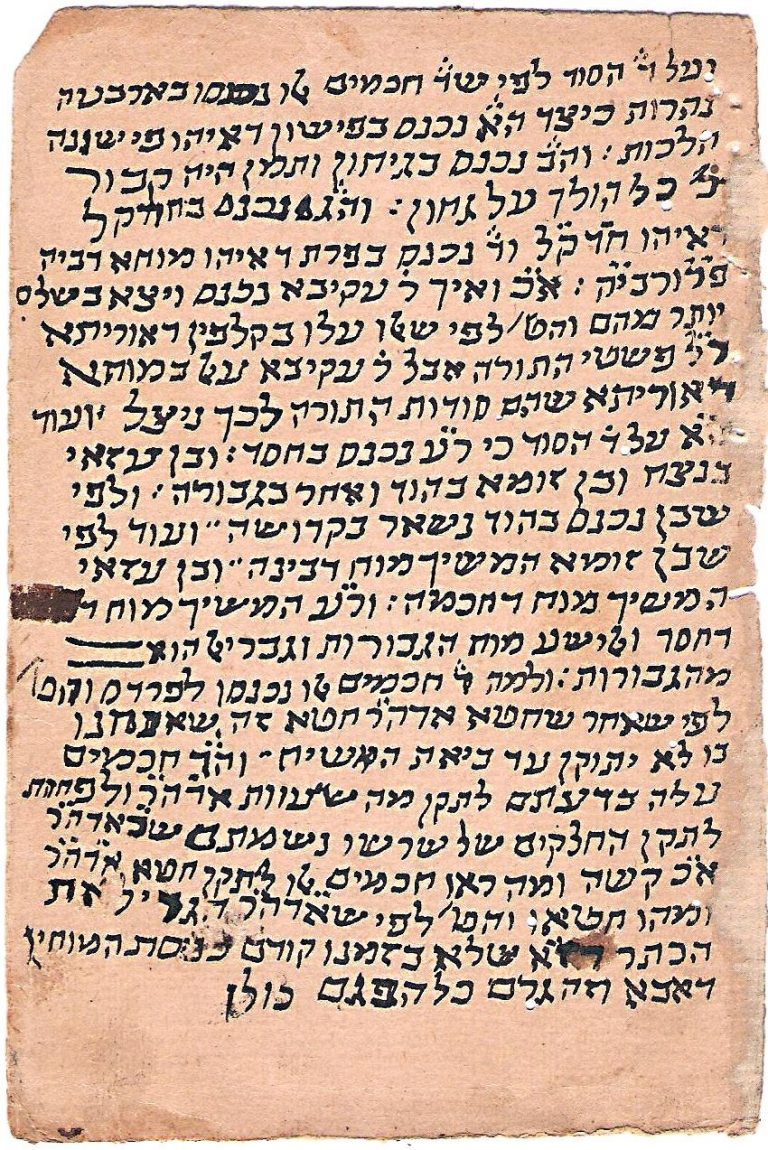 ועל ד' הסוד לפי שד' חכמים אלו נכנסו בארבעה
נהרות כיצד הא' נכנס בפישון דאיהו פי שונה
הלכות : והב' נכנס בגיחון ותמן היה קבור
כל הולך על גחון : והג' נכנס בחדקל
דאיהו חד קל וד' נכנס בפרת דאיהו מוחא דביה
פו"ר : א"כ ואיך ר' עקיבא נכנס ויצא בשלום
יותר מהם והט' לפי שאלו עלו בקלפין דאוריתא
ר"ל פשטי התורה אבל ר' עקיבא על במוחא
דאוריתא שהם סודות התורה לכך ניצל ועוד
עד"ר הסוד כי ר"ע נכנס בחסד : ובן עזאי
בנצח ובן זומא בהוד ואחר בגבורה : ולפי
שבן נכנס בהוד נשאר בקדושה ועוד לפי
שבן זומא המשיך מוח דבינה ובן עזאי
המשיך מוח דחכמה : ור"ע המשיך מוח ד
דחסד ואלישע מוח הגבורות וגבריאל הוא
מהגבורות : ולמה ד' חכמים אלו נכנסו לפרדס והט'
לפי שאחר שחטא אדה"ר חטא זה שאנחנו
בו לא יתוקן עד ביאת המשיח והד' חכמים
עלה בדעתם לתקן מה שעוות אדה"ר ולפחות
לתקן החלקים של שרשי נשמתם שבאדה"ר
א"כ קשה ומה ראו חכמים אלו לתקן חטא אדה"ר
ומהו חטאו והט' לפי שאדה"ר הגדיל את
הכתר דז"א שלא בזמנו קודם כניסת המוחין
דאבא וזה גרם כל הפגם כולן